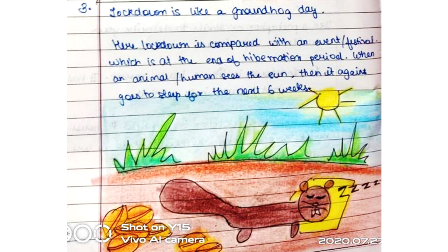 3. Lockdown is like a groundhog day.
Here lockdown is compared with an event/festival
which is at the end of hibernation period. When
an animal/human sees the sun, then it again
goes to sleep for the next 6 weeks.
zzzzz
Shot on Y15
Vivo AI camera
2020.07.2